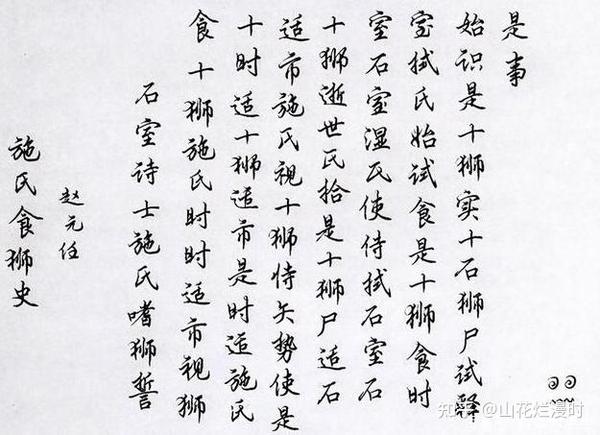 施氏食狮史
赵元任
石室诗士施氏嗜狮誓
食十狮施氏时时适市视狮
十时适十狮适市是时适施氏
适市施氏视十狮恃矢势使是
十狮逝世氏拾是十狮尸适石
室石室湿氏使侍拭石室石
室拭氏始试食是十狮食时
始识是十狮实十石狮尸试释
是事
知乎 @山花烂漫时